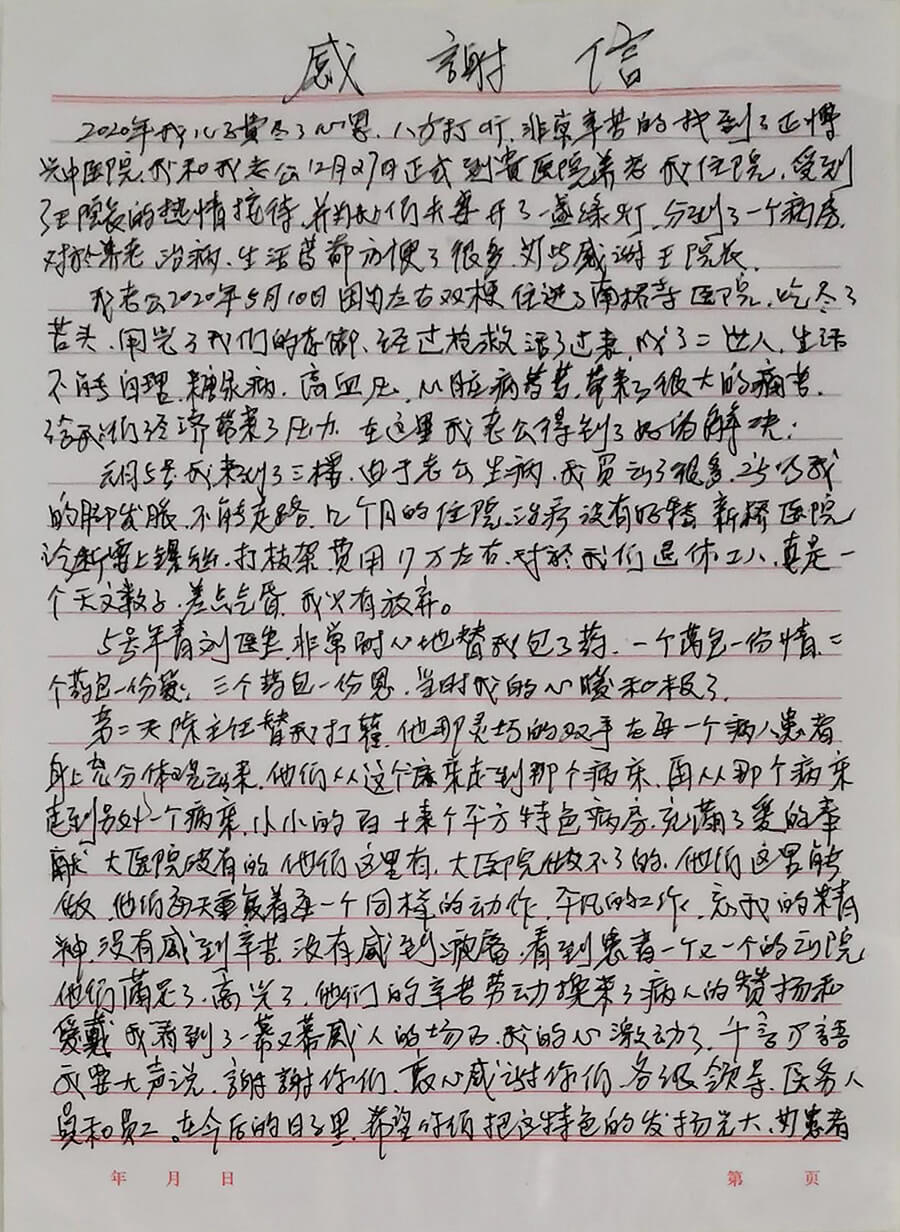 感謝信
2020年我儿子費尽了心思、八方打听、非常辛苦的找到了正博
兴中医院、我和我老公12月27日正式到贵医院养老我住院、受到
了王院长的热情接待、并为我们夫妻开了一盏绿灯、分到了一个病房、
对於养老、治病、生活等都方便了很多、对此感谢王院长、
我老公2020年5月10日因为左右双梗住进了南桥寺医院、吃尽了
苦头、用完了我们的存御、经过抢救活了过来、成了二世人、生活
不能自理、糖尿病、高血压、心脏病等等、带来了很大的痛苦、
给我们经济带来了压力、在这里我老公得到了好的解决:
元月5号我来到了三楼、由于老公生病、我累了很多、当时我
的脚发胀、不能走路、几个月的住院、治疗没有好转、新桥医院
诊断需上镙丝、打枝架、费用17万左右、对於我们退休工人、真是一
个天文数子、差点气昏、我只有放弃。
5号年青刘医生、非常耐心地替我包了药、一个药包一份情、二
个药包一份爱、三个药包一份恩、当时我的心暖和极了、
第二天陈主任替我打韓、他那灵巧的双手在每一个病人患者
身上充分体现出来、他们从这个床来走到那个病床、再从那个病床
走到另外一个病床、小小的百十来个平方特色病房、充满了爱的奉
献、大医院没有的、他们这里有、大医院做不了的、他们这里能
做、他们每天重复着每一个同样的动作、平凡的工作、忘我的精
神、没有感到辛苦、没有感到疲倦、看到患者一个又一个的出院
他们满足了、高兴了、他们的辛苦劳动换来了病人的赞扬和
爱戴、我看到了一幕又幕感人的场面、我的心激动了、千言万語
我要大声说、謝謝你们、衷心感谢你们、各级领导、医务人
员和员工。在今后的日子里、希望你们把这特色的发扬光大、为患者
年 月 日 第 页